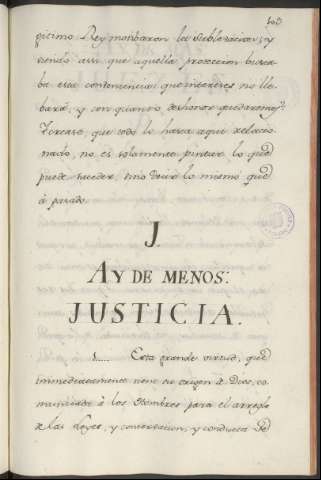 103
pisimo Rey motibaron la Sublevacion; y
siendo assi que aquella proteccion busca-
ba esas conteniencias que intereses no lle-
bará, y con quanto deshonor quedaremos?
Y crease, que todo lo hasta aqui relacio-
nado, no es solamente pintar lo que
puede suceder, sino decir lo mismo que
á pasado.
J.
AY DE MENOS:
JUSTICIA.
1..... Esta grande virtud, que
immediatamente tiene su origen de Dios, co-
municada à los Hombres para el arreglo
de las Leyes, y conservacion, y conducta de